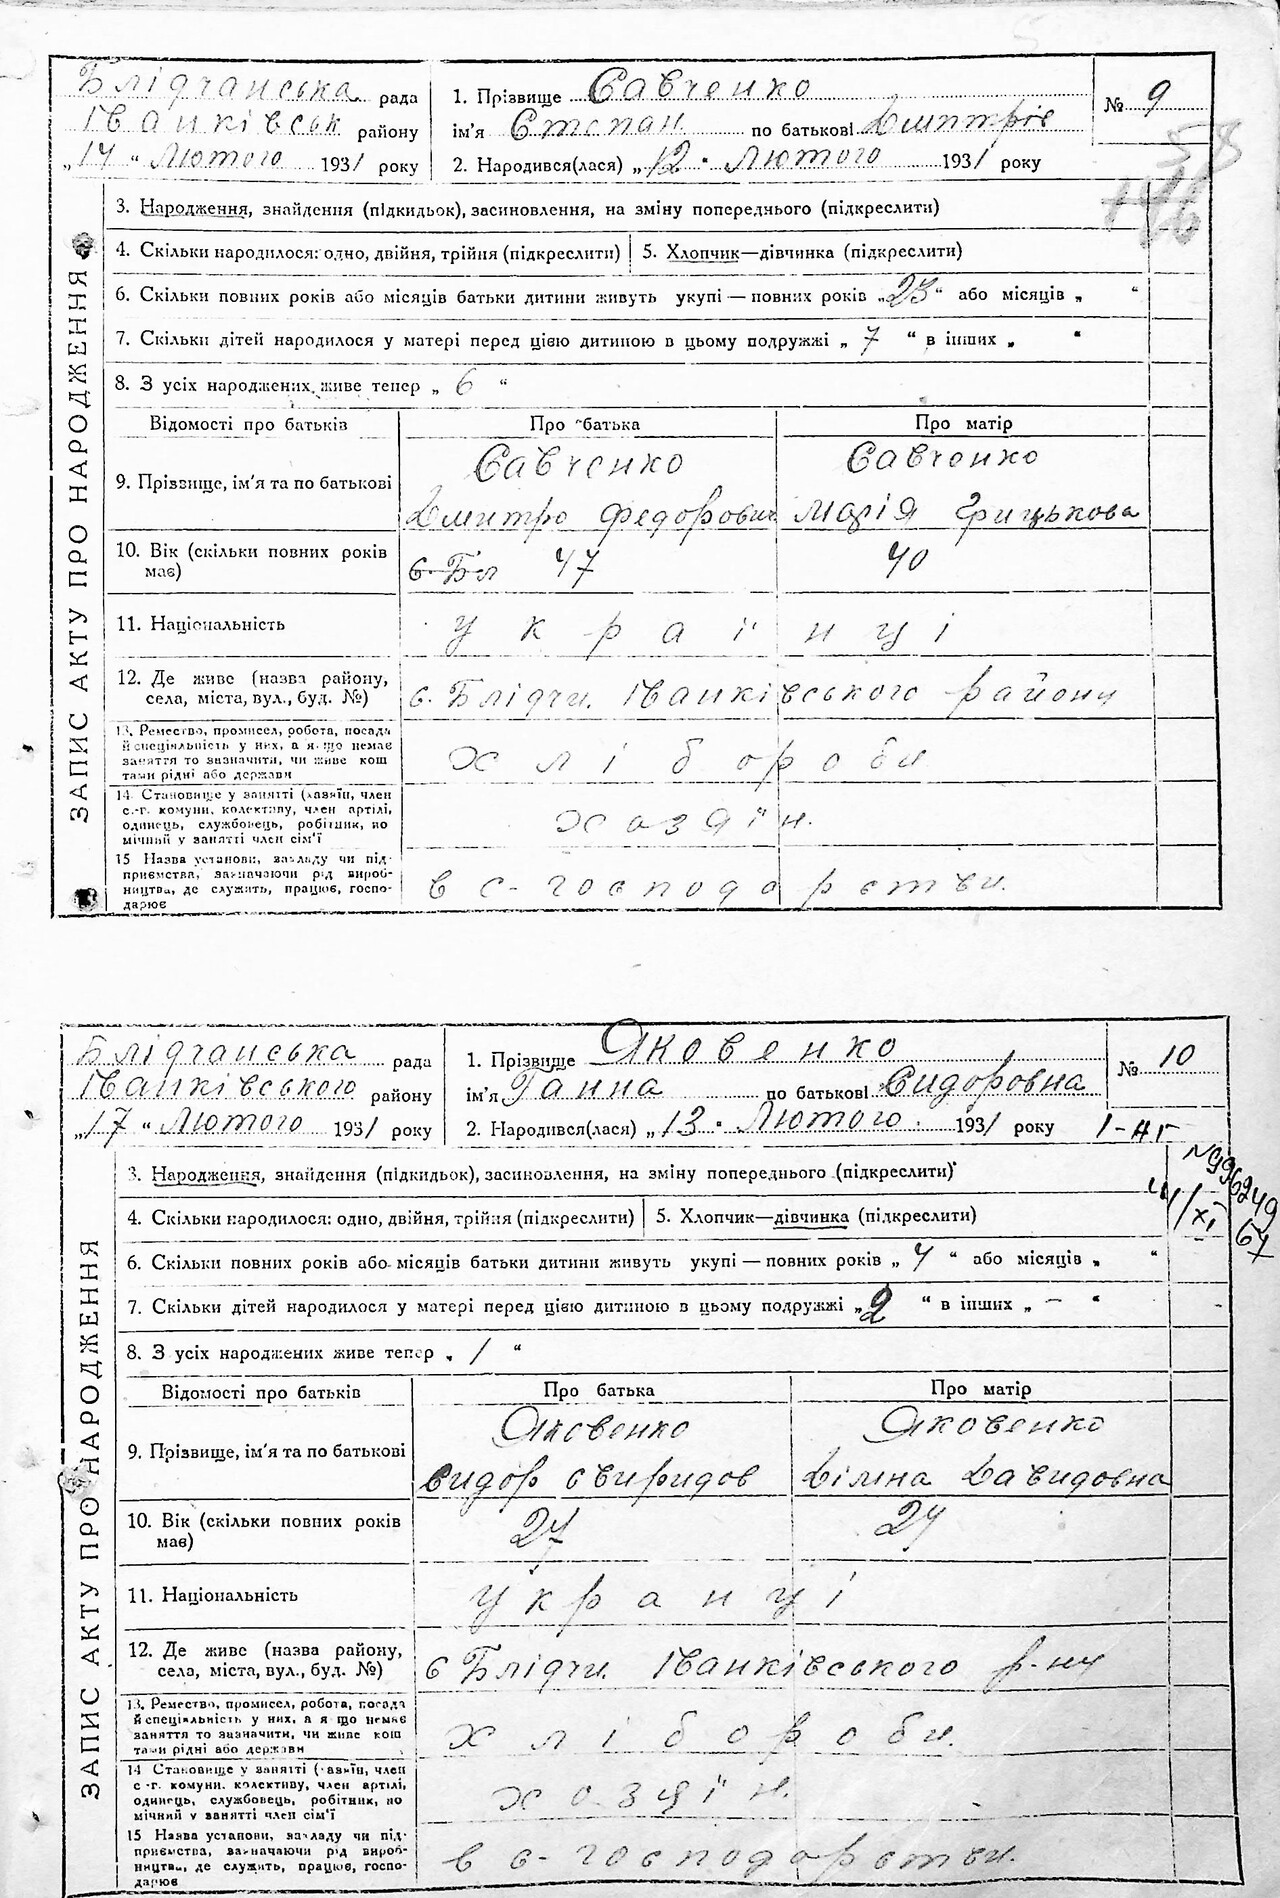 Блідчанська рада
Іванківськ району
„14 “ Лютого 1931 року
1. Прізвище Савченко
ім'я Степан по батькові Дмитрів
2. Народився(лася) „12 “ Лютого 1931 року
№ 9
58
146
ЗАПИС АКТУ ПРО НАРОДЖЕННЯ
3. Народження, знайдення (підкидьок), засиновлення, на зміну попереднього (підкреслити)
4. Скільки народилося: одно, двійня, трійня (підкреслити) 5. Хлопчик—дівчинка (підкреслити)
6. Скільки повних років або місяців батьки дитини живуть укупі — повних років „23“ або місяців „ “
7. Скільки дітей народилося у матері перед цією дитиною в цьому подружжі „ 7 “ в інших „ “
8. З усіх народжених живе тепер „ 6 “
Відомості про батьків Про батька Про матір
9. Прізвище, ім'я та по батькові
Савченко Савченко
Дмитро Федорович Марія Грицькова
10. Вік (скільки повних років має) с. Бл 47 40
11. Національність українці
12. Де живе (назва району, села, міста, вул., буд. №) с. Блідчи. Іванківського району
13. Ремество, промисел, робота, посада
й спеціяльність у них, а я що немає
заняття то зазначити, чи живе кош
тами рідні або держави
хлібороби
14. Становище у занятті (хазяїн, член
с.-г. комуни, колективу, член артілі,
одинець, службовець, робітник, по
мічний у занятті член сім'ї
хозяїн.
15 Назва установи, закладу чи під-
приємства, зазначаючи рід вироб-
ництва, де служить, працює, госпо-
дарює
в с-господарстви.
Блідчанська рада
Іванківського району
„17 “ Лютого 1931 року
1. Прізвище Яковенко
ім'я Ганна по батькові Сидоровна
2. Народився(лася) „13 “ Лютого 1931 року
№ 10
І-НГ
№996249
4/XI 67
ЗАПИС АКТУ ПРО НАРОДЖЕННЯ
3. Народження, знайдення (підкидьок), засиновлення, на зміну попереднього (підкреслити)
4. Скільки народилося: одно, двійня, трійня (підкреслити) 5. Хлопчик—дівчинка (підкреслити)
6. Скільки повних років або місяців батьки дитини живуть укупі — повних років „ 4 “ або місяців „ “
7. Скільки дітей народилося у матері перед цією дитиною в цьому подружжі „2 “ в інших „ — “
8. З усіх народжених живе тепер „ 1 “
Відомості про батьків Про батька Про матір
9. Прізвище, ім'я та по батькові
Яковенко Яковенко
Сидор Свиридов Давидовна
10. Вік (скільки повних років має) 27 24
11. Національність укранці
12. Де живе (назва району, села, міста, вул., буд. №) с Блідчи. Іванківського р-ну
13. Ремество, промисел, робота, посада
й спеціяльність у них, а я що немає
заняття то зазначити, чи живе кош
тами рідні або держави
хлібороби.
14 Становище у занятті (хазяїн, член
с.-г. комуни, колективу, член артілі,
одинець, службовець, робітник, по
мічний у занятті член сім'ї
хозяїн.
15 Назва установи, закладу чи під-
приємства, зазначаючи рід вироб-
ництва, де служить, працює, госпо-
дарює
в с-господарстви.